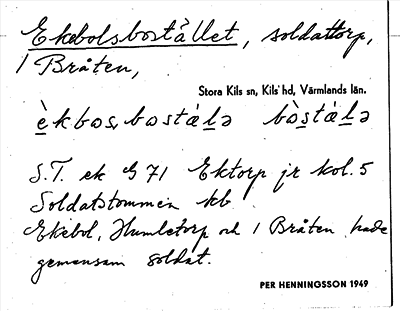 Ekebolsbostället, soldattorp,
1 Bråten,
Stora Kils sn, Kils' hd, Värmlands län.
èkbosbostálə bòstálə
S.T. ek G 71 Ektorp jr kol. 5
Soldatstommen kb
Ekebol, Humletorp och 1 Bråten hade
gemensam soldat.
PER HENNINGSSON 1949